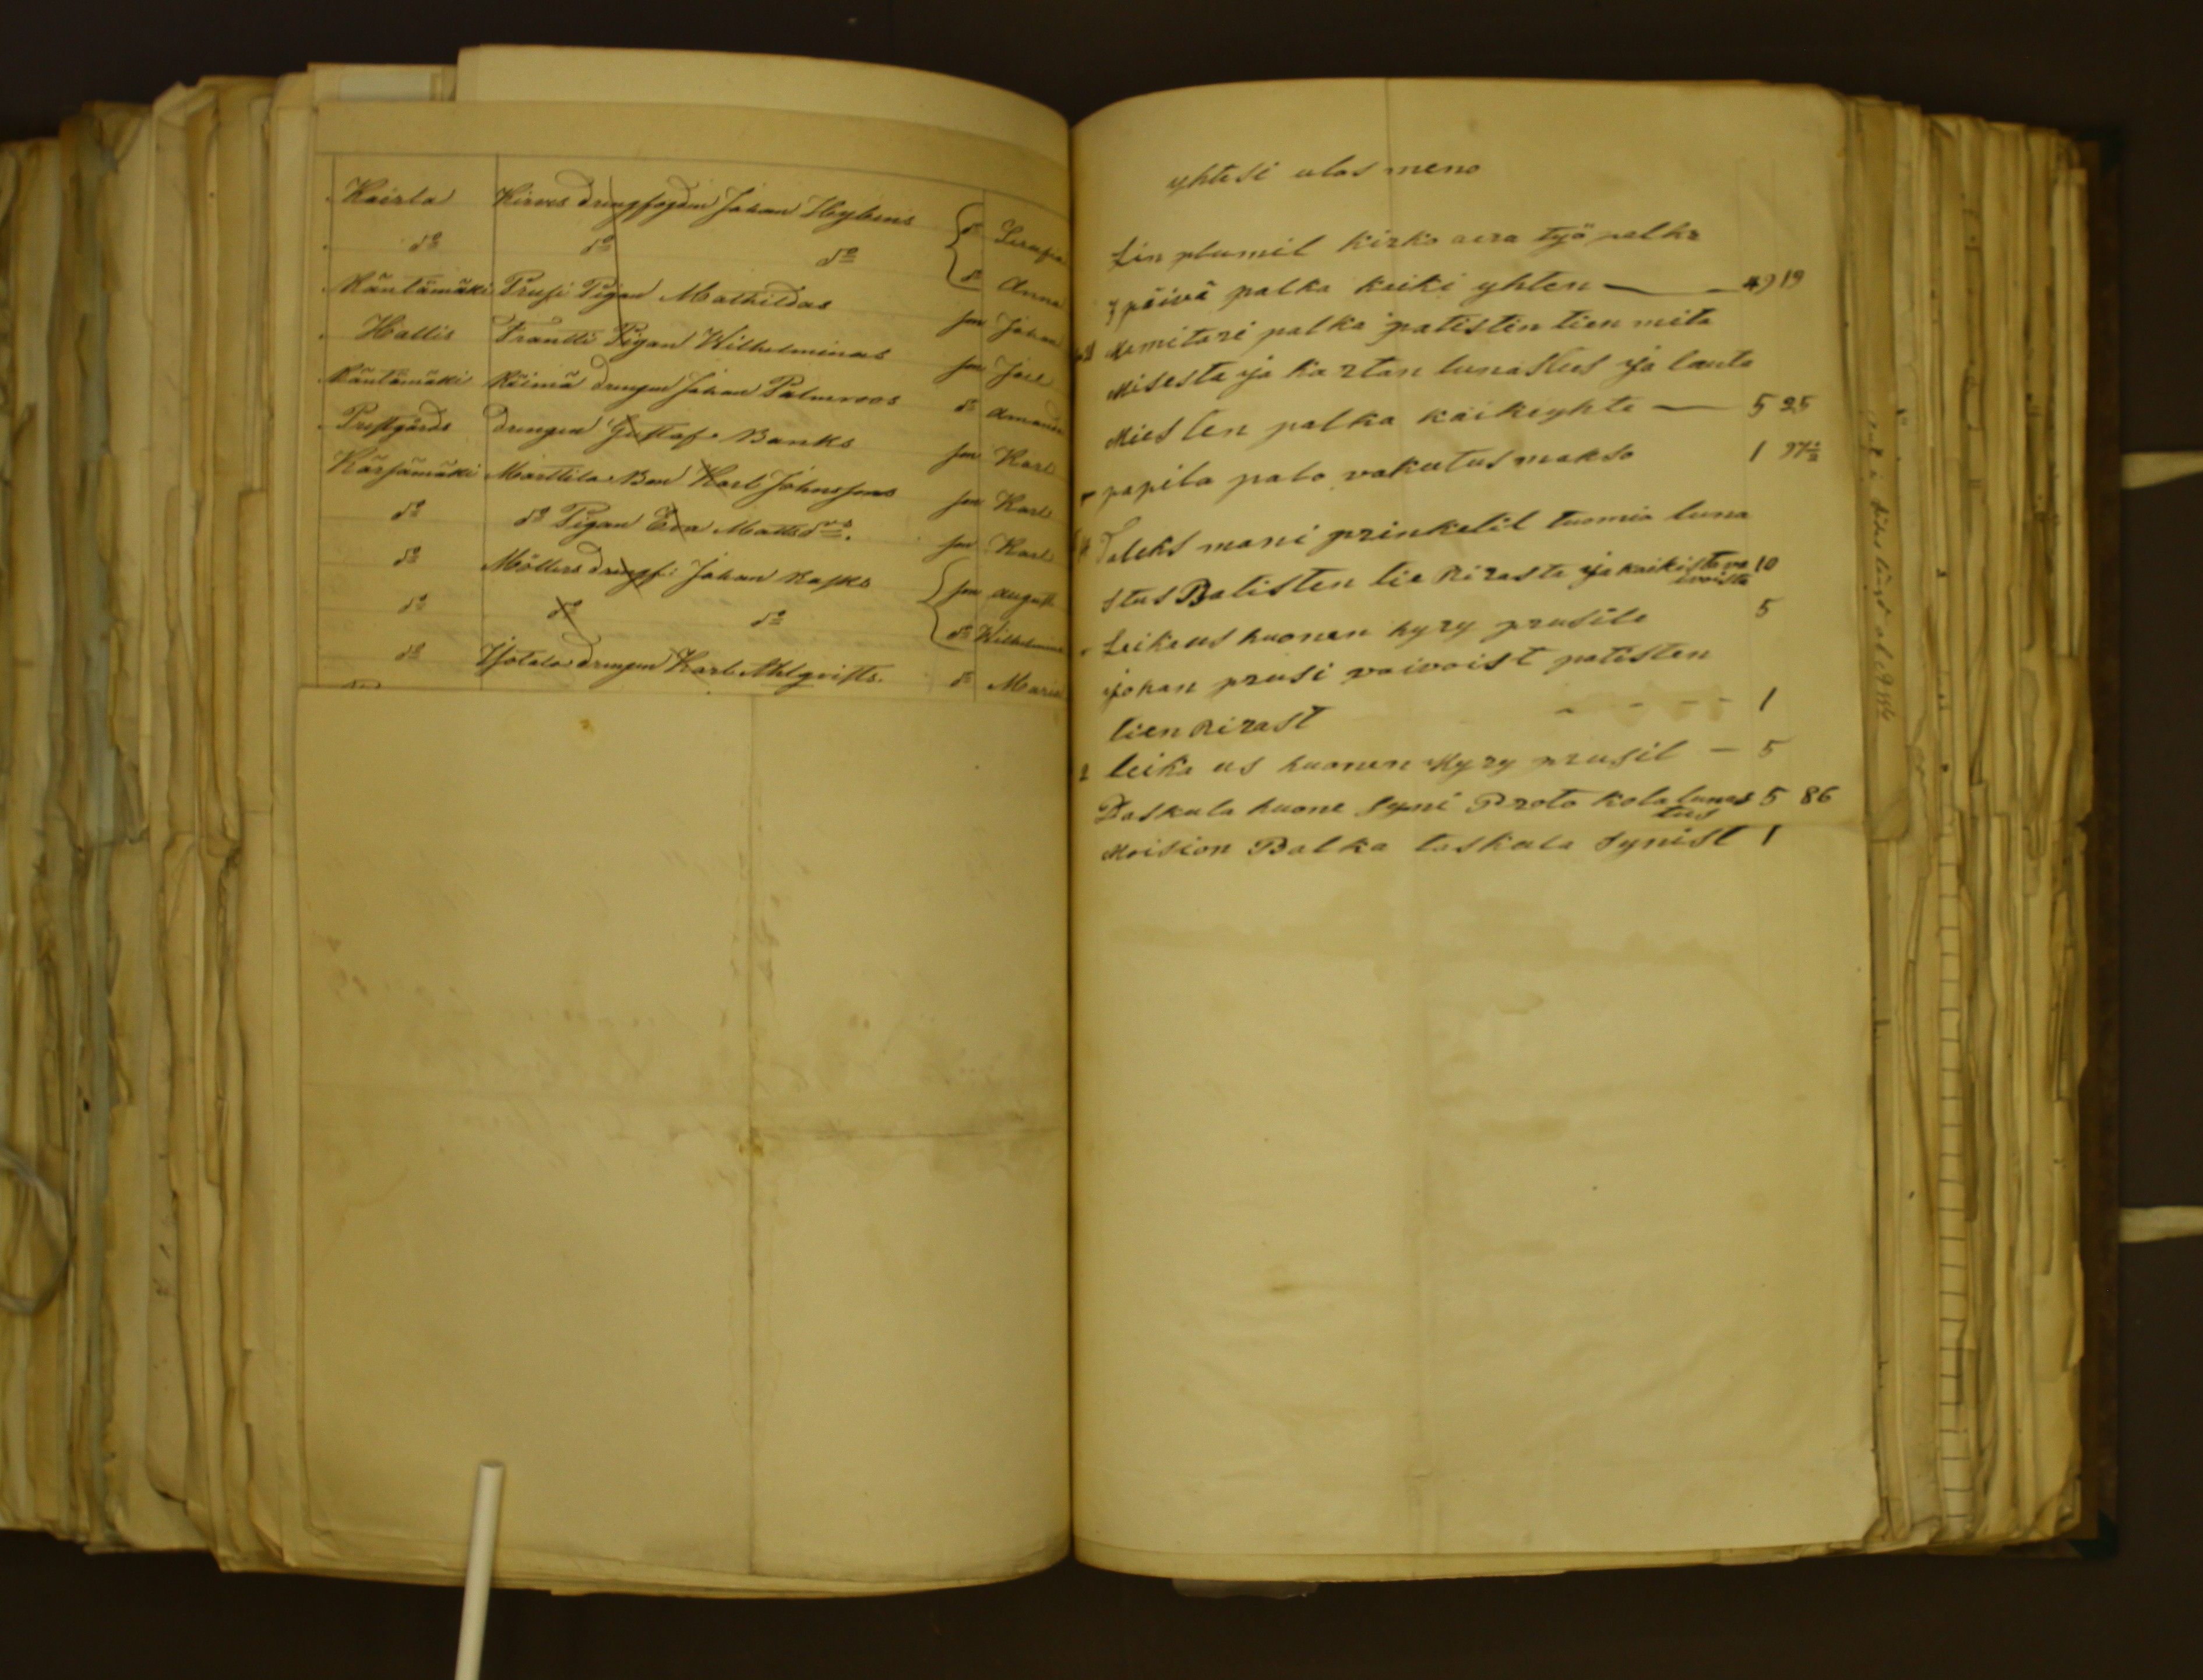 Kairla Kirves drengfogden Johan Nylunds do Serafia
do do do do Anna
Räntämäki Prusi Pigan Mathildas son Johan
Hallis Frantti Pigan Wilhelminas son Joel
Räntämäki Räimä drengen Johan Palmroos do Amanda
Prestgårds drengen Gustaf Banks son Karl
Kärsämäki Märttila Bon Karl Johnssons son Karl
do do Pigan Eva Mattsdrs. son Karl
do Möllers drengf: Johan Rasks son August
do do do do Wilhelmina
do Isotalo drengen Karl Ahlqvists do Maria
yhtesi ulos meno
Lin plumil kirko aera työ palka
7 päivä palka kaiki yhten — 49 19
Mamitari palka patistin tien mita
Misesta ja kartan lunastus ja lauta
Miesten palka kaikiyhte — 5 25
papila palo vakutus makso 1 97½
Taleks mani prinkelil tuomio luna
stus Batisten tie Rirasta ja kaikista va 10
ivoista
Leikaus huonen hyry prusile 5
johan prusi vaivoist patisten
tien Rirast - - - - 1
leika us huonen Hyry prusil — 5
Daskula huone syni Proto kola lunas 5 86
tus
Moision Balka taskula synist 1